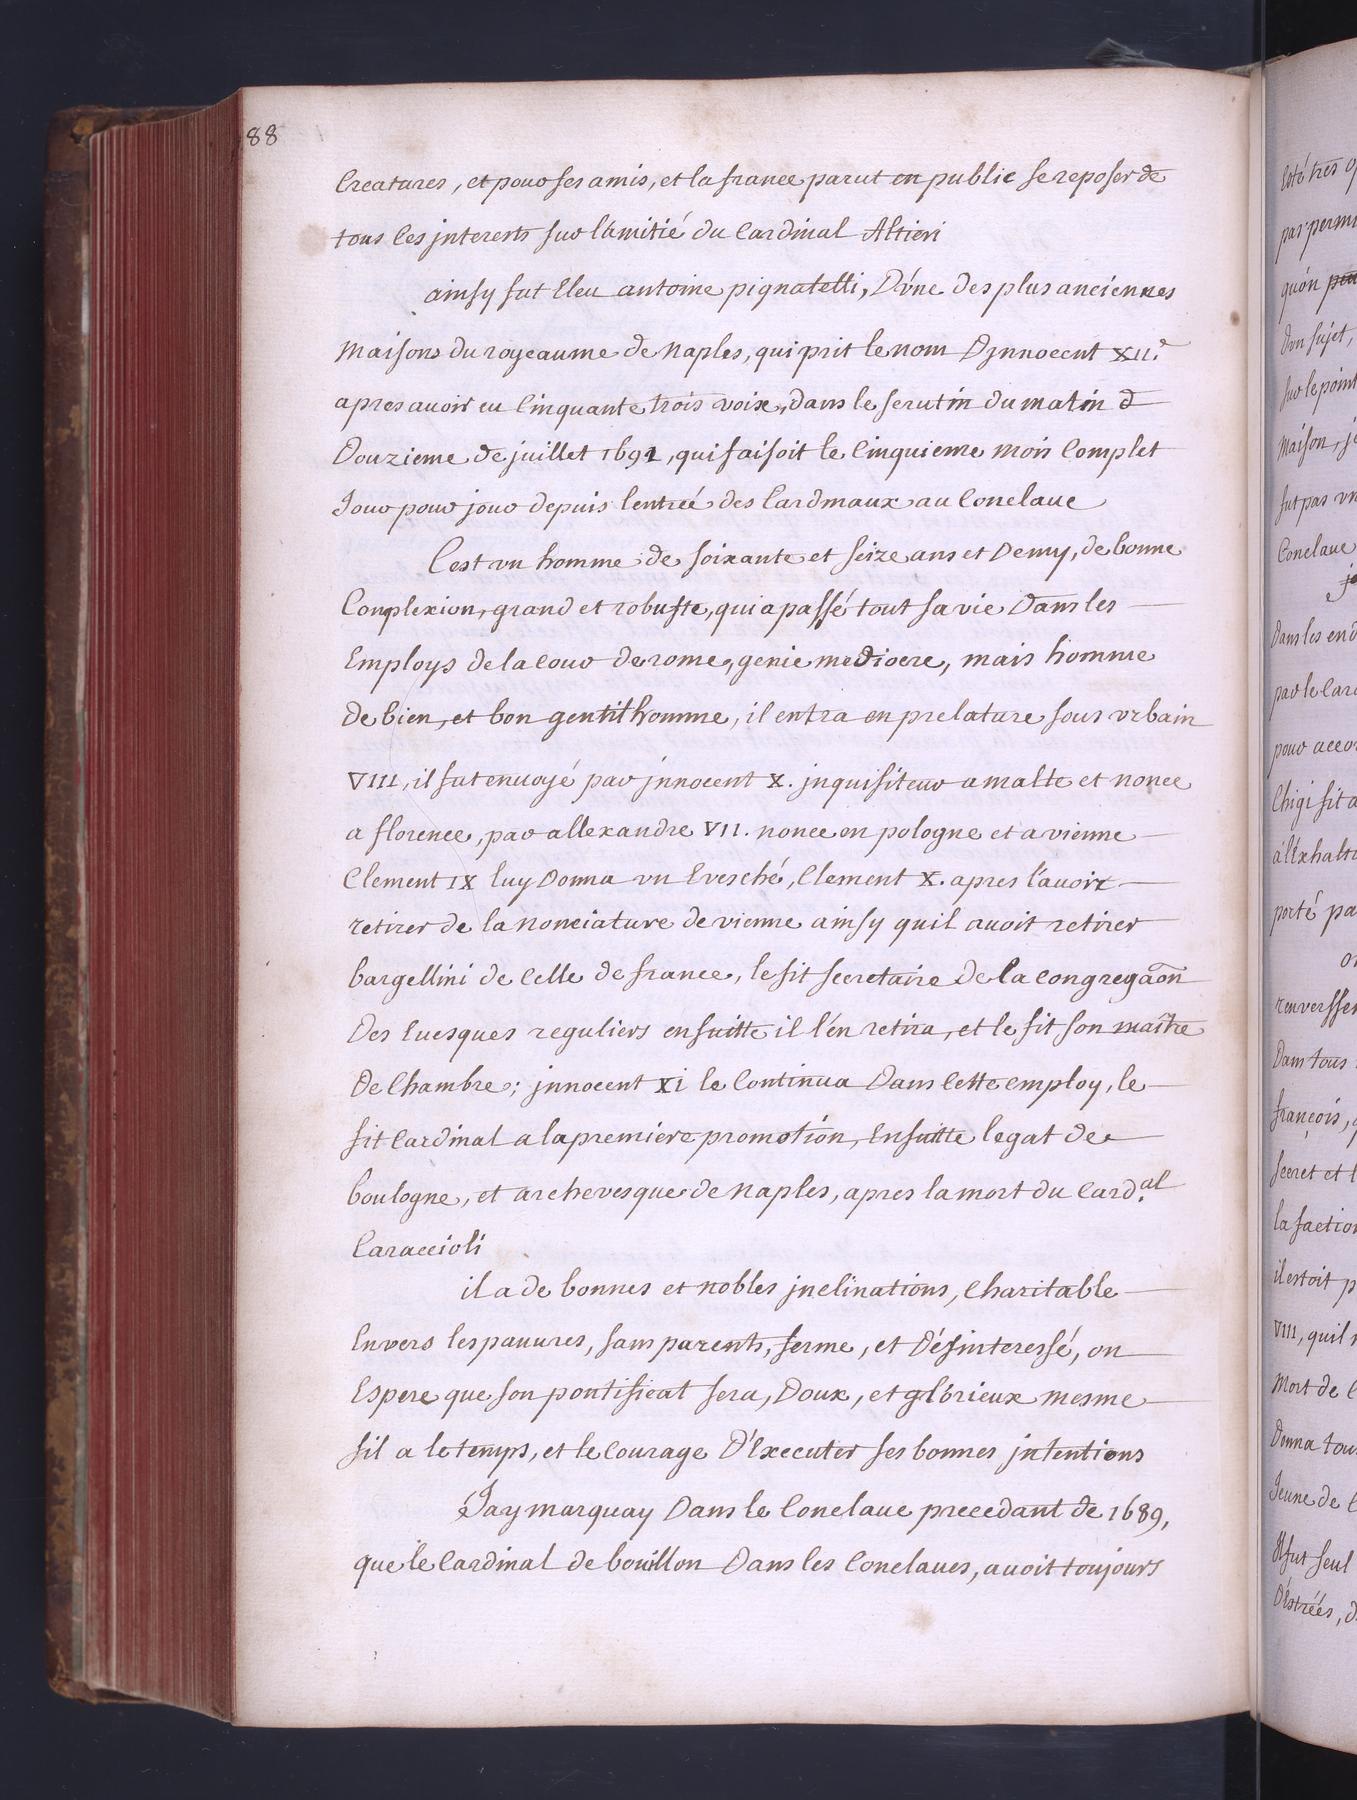 88
Creatures, et pour ses amis, et la france parut en public se reposer de
tous ses jnterests sur l'amitié du Cardinal Altieri
ainsy fut Eleu antoine pignatelli, D'vne des plus anciennes
Maisons du royeaume de Naples, qui prit le nom D'jnnocent XII.e
apres auoir eu Cinquante trois voix, dans le scrutin du matin d
Douzieme de juillet 1691, qui faisoit le Cinquieme Mois Complet
Jour pour jour depuis lentreé des Cardinaux au Conclaue
C'est vn homme de soixante et seize ans et Demy, de bonne
Complexion, grand et robuste, qui a passé tout sa vie Dans les
Employs de la cour de rome, genie mediocre, mais homme
de bien, et bon gentilhomme, il entra en prelature sous vrbain
VIII, il fut enuoyé par jnnocent X. jnquisiteur a malte et nonce
a florence, par allexandre VII. nonce en pologne et a vienne
Clement IX luy Donna vn Evesché, Clement X. apres l'auoir
retirer de la nonciature de vienne ainsy quil auoit retirer
bargellini de Celle de france, le fit secretaire de la congregãon
Des Euesques reguliers ensuitte il l'en retira, et le fit son maître
De Chambre; jnnocent XI le Continua Dans Cette employ, le
fit Cardinal a la premiere promotion, Ensuitte legat de
boulogne, et archevesque de Naples, apres la mort du Card.al
Caraccioli
il a de bonnes et nobles jnclinations, Charitable
Envers les pauures, sans parents, ferme, et Désinteressé, on
Espere que son pontificat sera, Doux, et glorieux mesme
sil a le temps, et le Courage D'Executer ses bonnes jntentions
Jay marquay Dans le Conclaue precedant de 1689,
que le Cardinal de bouillon Dans les Conclaues, auoit toujours